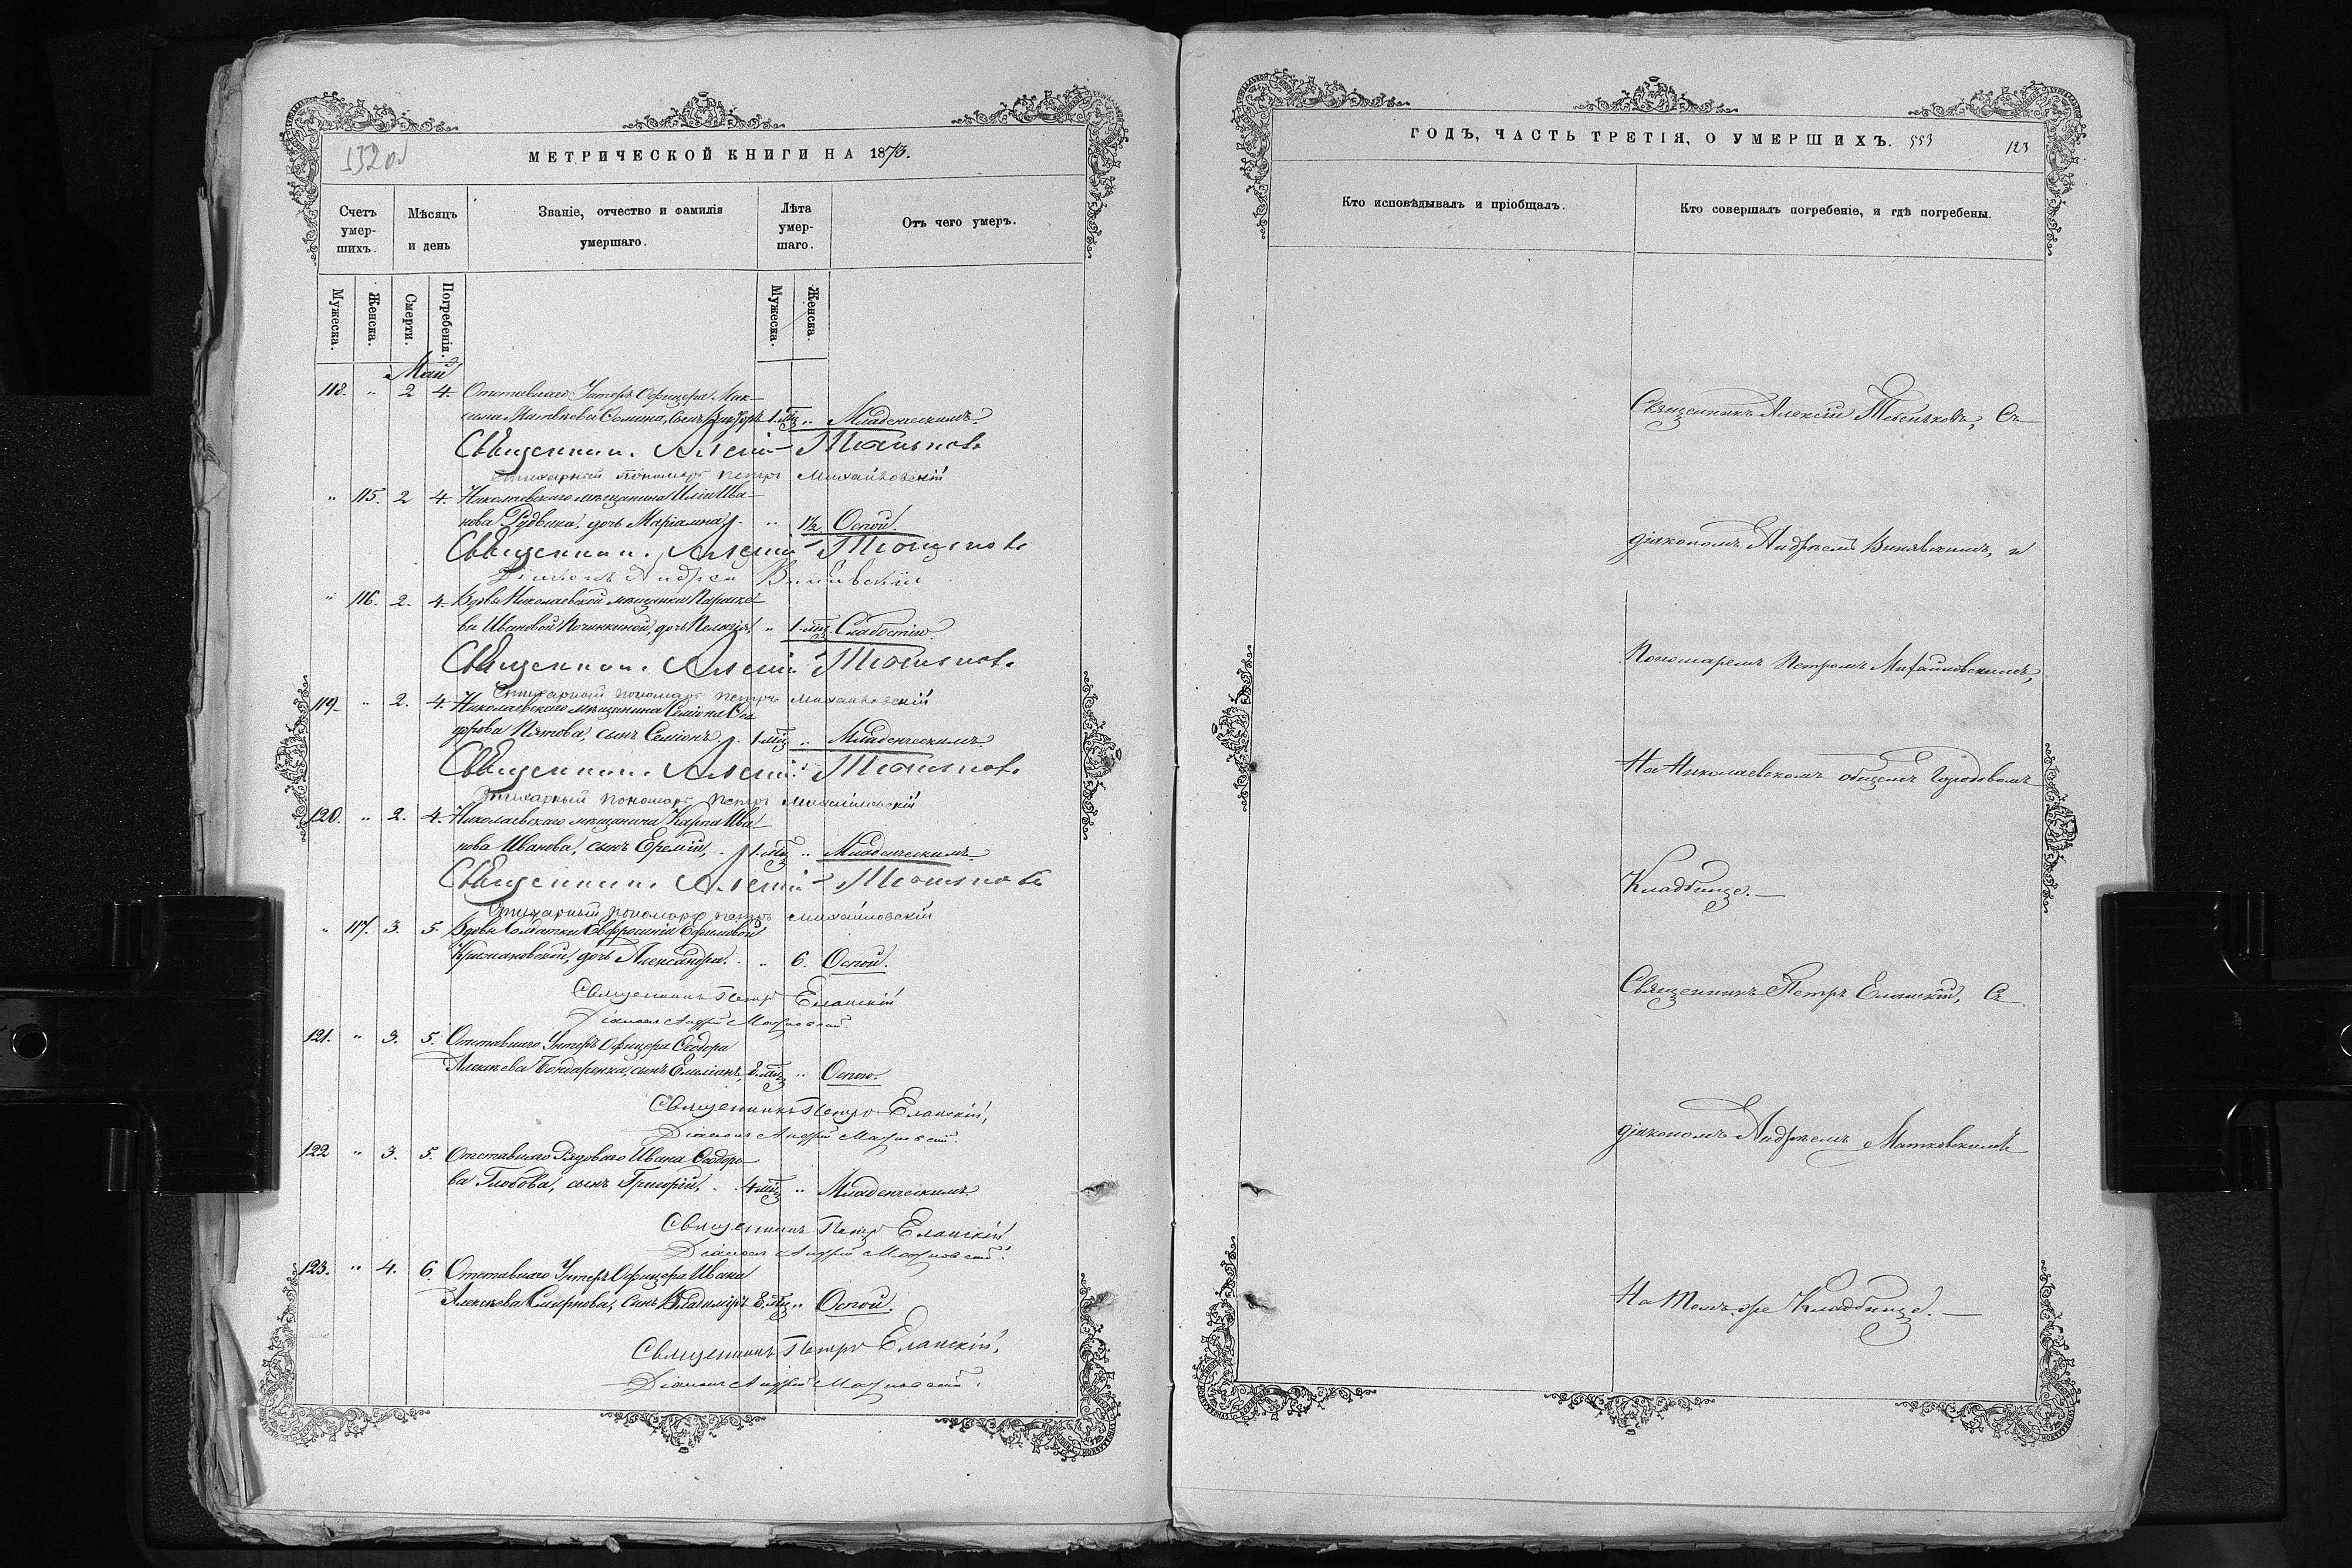 132об
МЕТРИЧЕСКОЙ КНИГИ НА 1873.
Счетъ умер-шихъ.
Мѣсяцъ и день
Званіе, отчество и фамилія умершаго.
Лѣта умер-шаго.
Отъ чего умеръ.
Мужеска.
Женска.
Смерти.
Погребенія.
Мужеска.
Женска.
Май
118. " 2 4. Отставнаго Унтеръ Офицера Мак-
сима Матвѣева Семина, сынъ 1. мц " Младенческимъ.
Священник. Алексій
Стихарный пономарь Петръ Михайловскій
" 115. 2 4. Николаевскаго мѣщанина Иліи Ива-
нова Рудвика, дочь Маріамна. " 1½ Оспой.
Священник. Алексій
Діаконъ Андрей
" 116. 2. 4. Вдовы Николаевской мѣщанки Параске-
вы Ивановой Починкиной, дочь Пелагія, " 1. мц. Слабостію.
Священник. Алексій
Стихарный пономарь Петръ Михайловскій
119. " 2. 4. Николаевскаго мѣщанина Семіона Сѵ-
дорова Пятова, сынъ Семіонъ. 1. мц " Младенческимъ.
Священник. Алексій
Стихарный пономарь Петръ Михайловскій
120. " 2. 4. Николаевскаго мѣщанина Карпа Ива-
нова Иванова, сынъ Еремій, 1. мц " Младенческимъ.
Священник. Алексій
Стихарный пономарь Петръ Михайловскій
" 117. 3. 5. Вдовы Солдатки Евфросиніи Ефимовой
Крыжановской, дочь Александра. " 6. Оспой.
Священникъ Петръ Еланскій
Діаконъ Андрей
121. " 3. 5. Отставнаго Унтеръ Офицера Ѳеодора
Алексѣева Бондаренка, сынъ Емиліанъ, 8. мц " Оспою.
Священникъ Петръ Еланскій,
Діаконъ Андрей
122 " 3. 5. Отставнаго Рядоваго Ивана Ѳеодоро-
ва Глобова, сынъ Григорій, 4 мц " Младенческимъ.
Священникъ Петръ Еланскій
Діаконъ Андрей
123. " 4. 6. Отставнаго Унтеръ Офицера Ивана
Алексѣева Смирнова, сынъ Владиміръ 8. мц " Оспой.
Священникъ Петръ Еланскій,
Діаконъ Андрей
ГОДЪ, ЧАСТЬ ТРЕТІЯ, О УМЕРШИХЪ. 553
123
Кто исповѣдывалъ и пріобщалъ.
Кто совершалъ погребеніе, и гдѣ погребены.
Священникъ Алексій съ
діакономъ Андреемъ и
Пономаремъ Петромъ Михайловскимъ,
На Николаевскомъ общемъ Городовомъ
Кладбищѣ.—
Священникъ Петръ Еланскій, съ
діакономъ Андреемъ
На томъ же Кладбищѣ.—